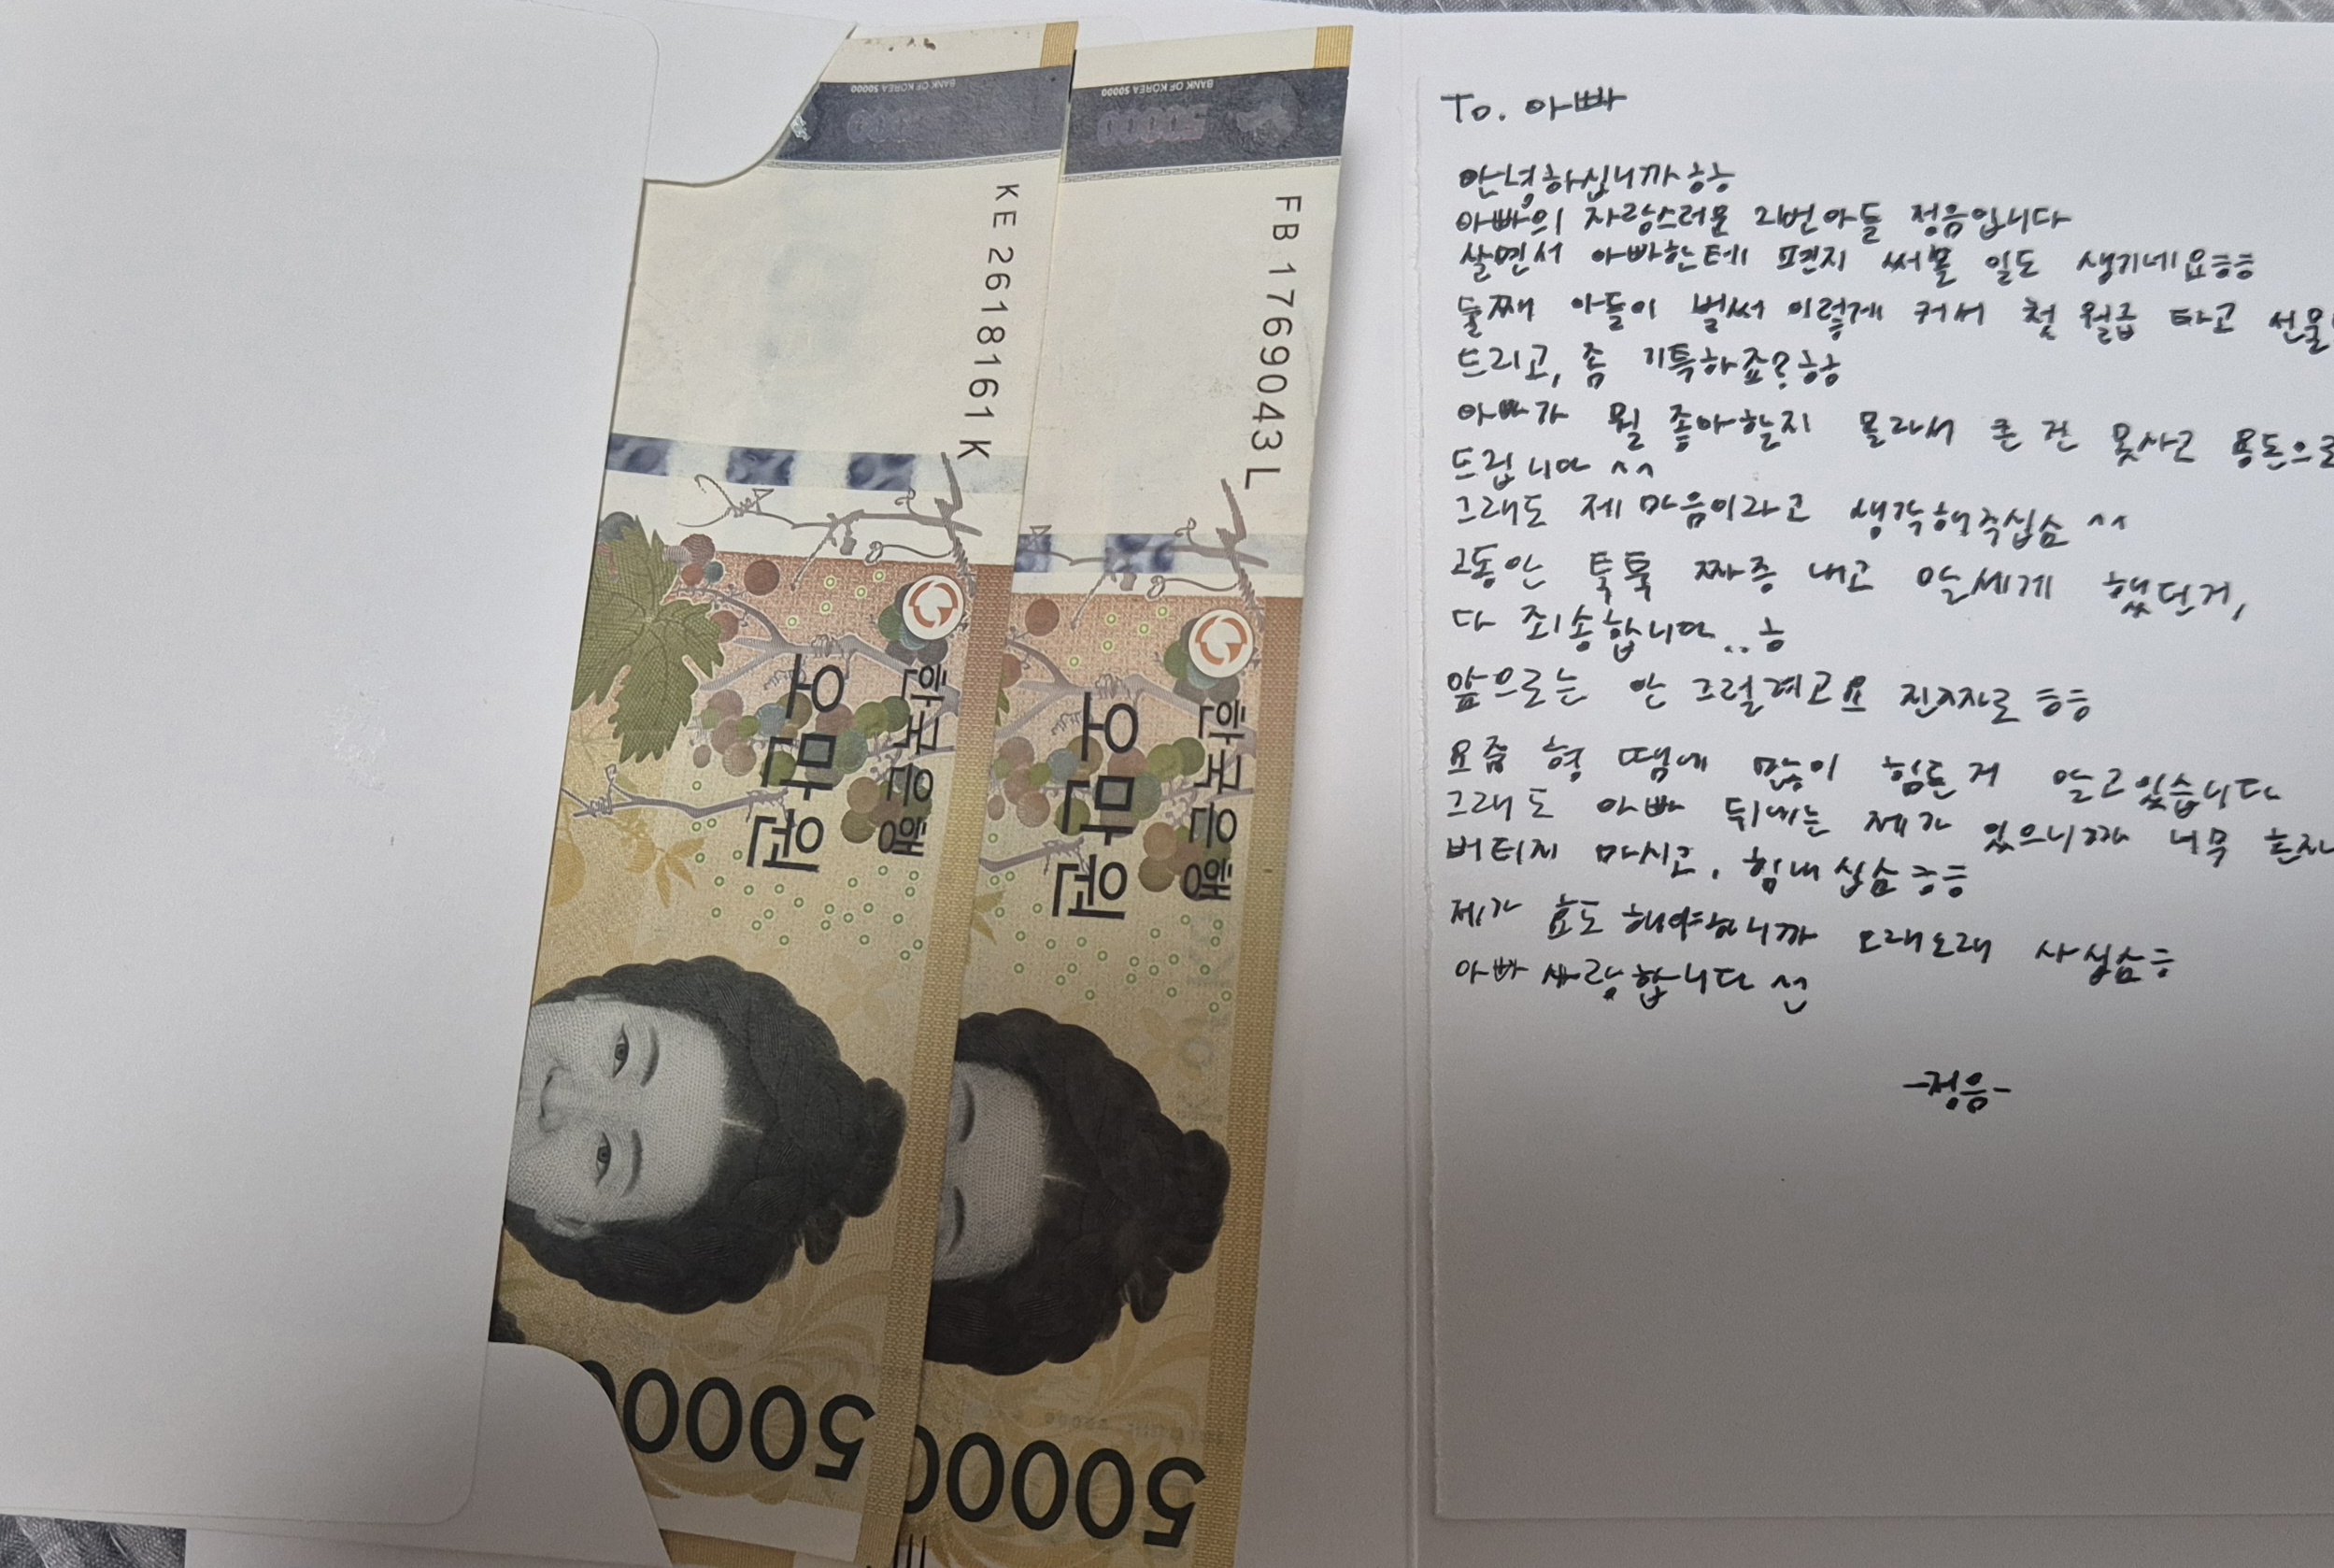 BANK OF KOREA 50000
50000
KE 2618161 K
한국은행
오만원
5000
BANK OF KOREA 50000
50000
FB 1769043 L
한국은행
오만원
5000
To. 아빠
안녕하십니까ㅎㅎ
아빠의 자랑스러운 2번아들 정음입니다
살면서 아빠한테 편지 써볼 일도 생기네요ㅎㅎ
둘째 아들이 벌써 이렇게 커서 첫 월급 타고 선물
드리고, 좀 기특하죠? ㅎㅎ
아빠가 뭘 좋아할지 몰라서 큰 건 못사고 용돈으로
드립니다 ^^
그래도 제 마음이라고 생각해주십쇼 ^^
그동안 툭툭 짜증 내고 말세게 했던거,
다 죄송합니다..ㅎ
앞으로는 안 그럴려고요 진짜로 ㅎㅎ
요즘 형 땜에 많이 힘든거 알고있습니다
그래도 아빠 뒤에는 제가 있으니까 너무 혼자
버티지 마시고, 힘내십쇼 ㅎㅎ
제가 효도 해야하니까 오래오래 사십쇼ㅎ
아빠 싸랑합니다
-정음-